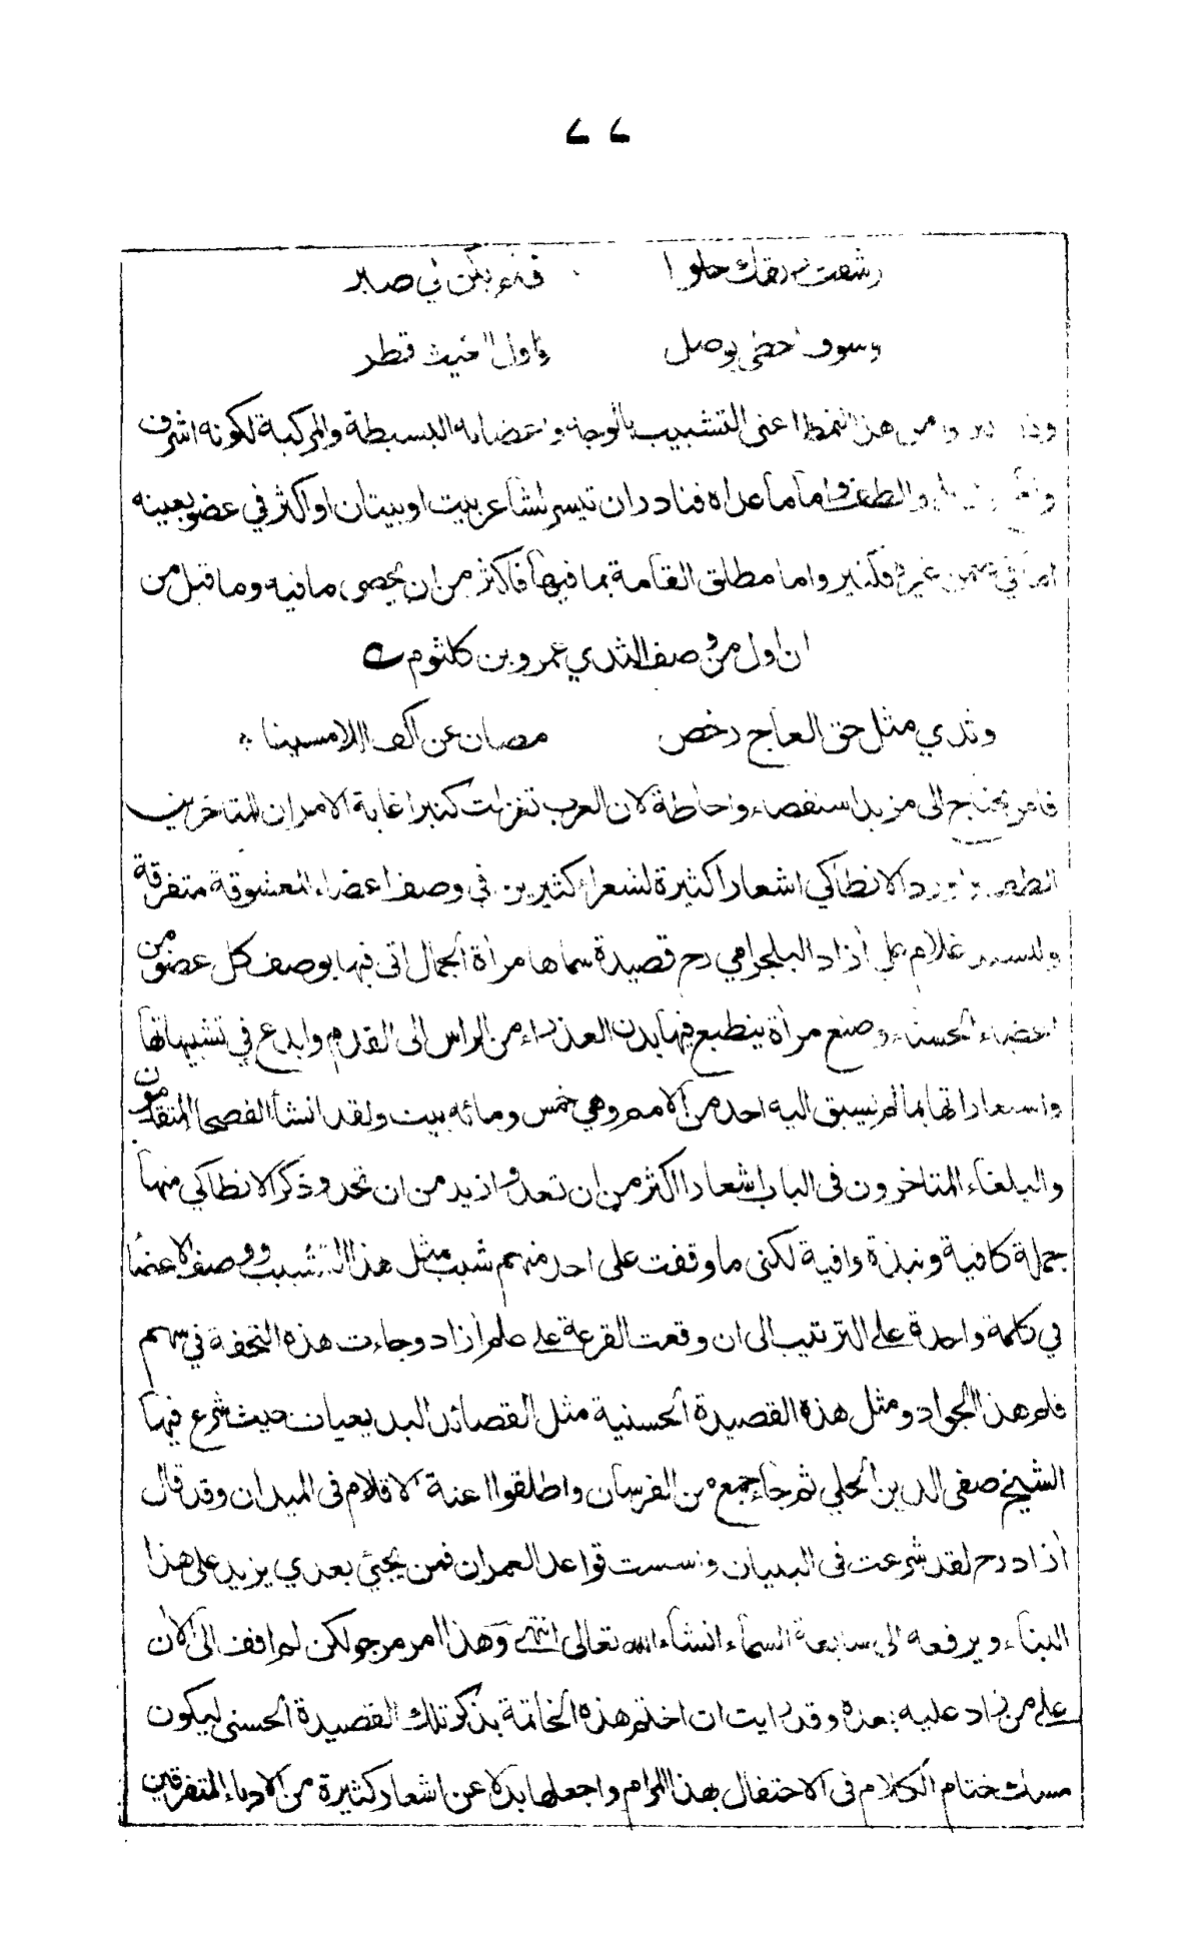 رشفت ريقك حلوا فلم يكن لي صبر
وسوف احظى بوصل واول الغيث قطر
هذا النمط اعنى التشبيب بالوجه واعضائه البسيطة والمركبة لكونه اشرف
والطف واما ما عداه فنادر ان تيسر لشاعر بيت او بيتان او اكثر في عضو بعينه
غيره فكثير واما مطلق القامة بما فيها فاكثر من ان يحصى ما فيه وما قبل من
ان اول من وصف الثدي عمرو بن كلثوم
وثدي مثل حق العاج رخص مصان عن اكف اللامسينا
فامر يحتاج الى مزيد استقصاء واحاطة لان العرب تغزلت كثيرا غاية الامر ان المتاخرين
الطف واورد الانطاكي اشعارا كثيرة لشعراء كثيرين في وصف اعضاء المعشوقة متفرقة
وللسيد غلام علي أزاد البلجرامي رح قصيدة سماها مرأة الجمال اتى فيها بوصف كل عضو من
اعضاء الحسناء وصنع مرأة ينطبع فيها بدن العذراء من الراس الى القدم وابدع في تشبيهاتها
واستعاراتها بما لم يسبق اليه احد من الامم وهي خمس ومائه بيت ولقد انشأ الفصحا المتقدمون
والبلغاء المتاخرون فى الباب اشعارا اكثر من ان تعد وازيد من ان تحد وذكر الانطاكي منها
جملة كافية ونبذة وافية لكنى ما وقفت على احد منهم شبب مثل هذا التشبيب ووصف الاعضا
في كلمة واحدة على الترتيب الى ان وقعت القرعة على علم أزاد وجاءت هذه التحفة في سهم
قلم هذا الجواد ومثل هذه القصيدة الحسنية مثل القصائد البديعيات حيث شرع فيها
الشيخ صفى الدين الحلي ثم جاء جمع من الفرسان واطلقوا اعنة الاقلام فى الميدان وقد قال
أزاد رح لقد شرعت فى البنيان واسست قواعد العمران فمن يجئ بعدي يزيد على هذا
البناء ويرفعه الى سابعة السماء انشاء الله تعالى انتهى وهذا امر مرجو لكن لم اقف الى الأن
على من زاد عليه بعده وقد رايت ان اختم هذه الخاتمة بذكر تلك القصيدة الحسنى ليكون
مسك ختام الكلام فى الاحتفال بهذا المرام واجعلها بدلا عن اشعار كثيرة من الادباء المتفرقين